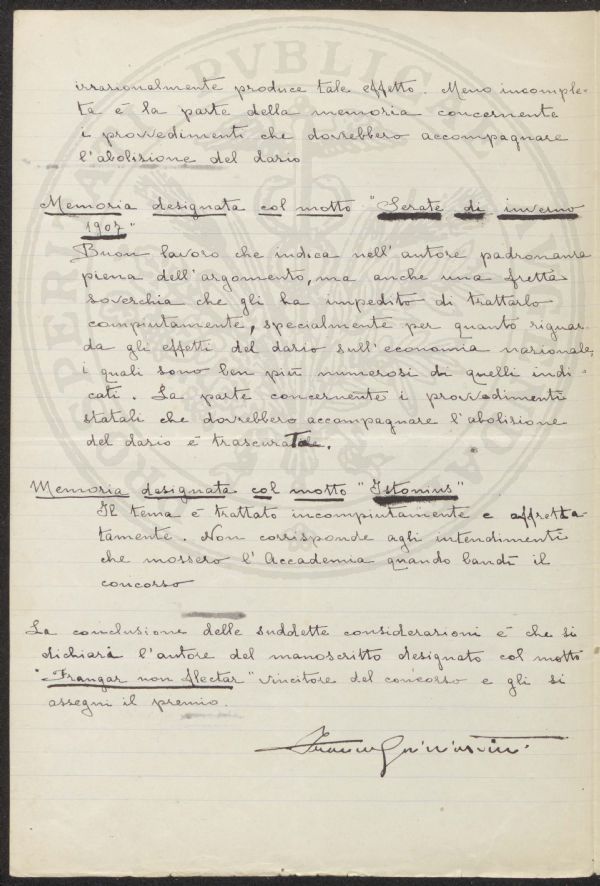 irrazionalmente produce tale effetto. Meno incomple-
ta è la parte della memoria concernente
i provvedimenti che dovrebbero accompagnare
l'abolizione del dazio
Memoria designata col motto "Serate di inverno
1907"
Buon lavoro che indica nell'autore padronanza
piena dell'argomento, ma anche una fretta
soverchia che gli ha impedito di trattarlo
compiutamente, specialmente per quanto riguar-
da gli effetti del dazio sull'economia nazionale,
i quali sono ben più numerosi di quelli indi-
cati. La parte concernente i provvedimenti
statali che dovrebbero accompagnare l'abolizione
del dazio è trascurata.
Memoria designata col motto "Istonius"
Il tema è trattato incompiutamente e affretta
tamente. Non corrisponde agli intendimenti
che mossero l'Accademia quando bandì il
concorso
La conclusione delle suddette considerazioni è che si
dichiari l'autore del manoscritto designato col motto
"Frangar non flectar" vincitore del concorso e gli si
assegni il premio.
PVBLICAE
PROSPERITATI